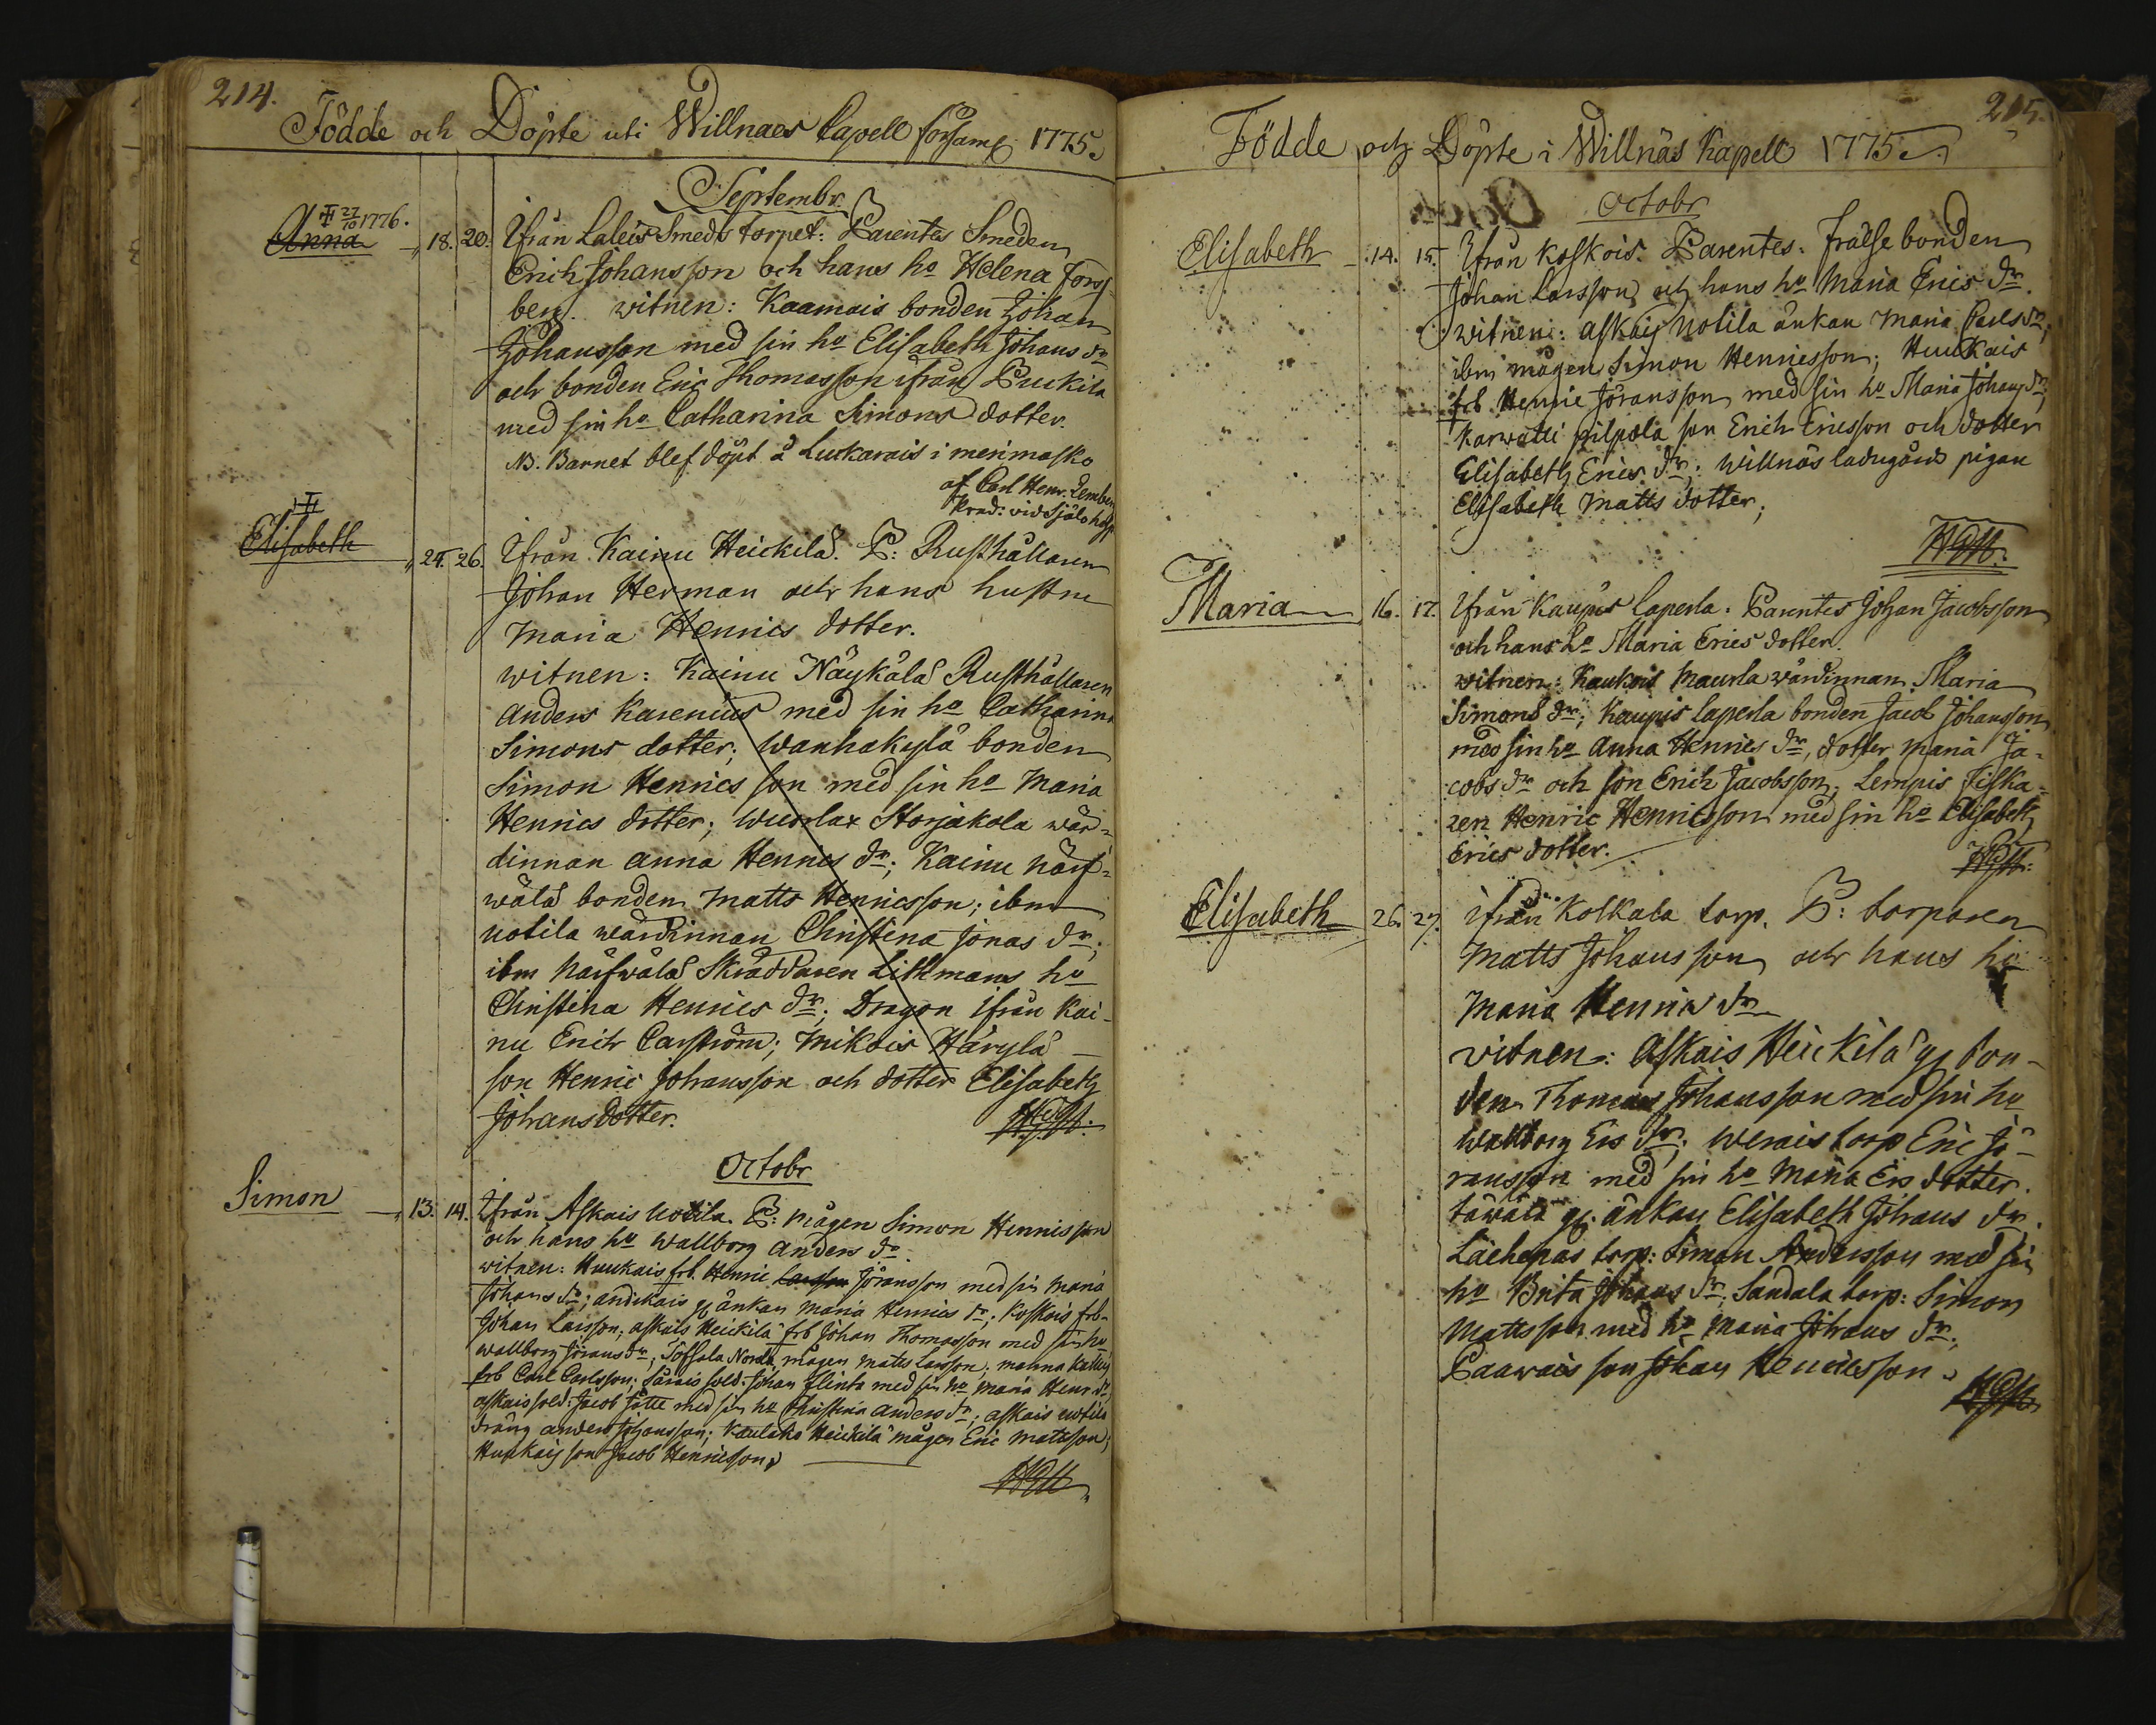 214.
Födde och Döpte uti Willnaes Capell församl 1775.
Septembr.
╬ 27/10 1776.
Anna 18. 20. Ifrån Laleis Smeds torpet: Parentes Smeden
Erich Johansson och hans ho Helena Fors-
berg. witnen: Kaamais bonden Johan
Johansson med sin ho Elisabeth Johans dr
och bonden Eric Thomasson ifrån Puckila
med sin ho Catharina Simons dotter.
NB. Barnet blef döpt å Luskarais i merimasko
af Carl Henr. Lemberg
Pred: vid Själo hosp
Elisabeth 24. 26. Ifrån Kainu Heickilä. P: Rusthållaren
Johan Herman och hans hustru
Maria Henrics dotter.
witnen: Kainu Näykälä Rusthållaren
Anders Karenius med sin ho Catharina
Simons dotter; Wanhakylä bonden
Simon Henricsson med sin ho Maria
Henrics dotter; Wuorlax Storjakola wär-
dinnan Anna Henrics dr; Kainu Närf-
wälä bonden Matts Henricsson; ibm
Uotila wärdinnan Christina Jonas dr;
ibm Närfwälä Skräddaren Lithmans ho
Christina Henrics dr; Dragon ifrån Kai-
nu Erich Carström; Mikois Häryla
son Henric Johansson och dotter Elisabeth
Johansdotter.
Octobr
Simon 13. 14. Ifrån Askais Uotila. P: mågen Simon Henricsson
och hans ho Wallborg Anders dr.
witnen: Huukais frb. Henric Larsson Jöransson med sin Maria
Johans dr; Andikais gl änkan Maria Henrics dr; Koskois frb.
Johan Larsson; Askais Heickilä frb Johan Thomasson med sin ho
Wallborg Jörans dr; Toffala Norda mågen Matts Larsson; manna
frb Carl Carlsson; Särais sold. Johan Flinta med sin ho Maria Henr. dr
Askais sold: Jacob Jätte med sin ho Christina Anders dr; Askais Uotila
dräng Anders Johansson; Kaulaho Heickilä mågen Eric Mattsson;
Huukais son Jacob Henricsson.
215.
Födde och Döpte i Willnäs Kapell 1775.
Octobr
Elisabeth 14. 15. Ifrån Koskois. Parentes: Frälse bonden
Johan Larsson och hans ho Maria Erics dr.
witnen: Askais Uotila änkan Maria Carls dr;
ibm mågen Simon Henricsson; Huukais
frb Henric Jöransson med sin ho Maria Johans dr;
Karwatti pilpola son Erich Ericsson och dotter
Elisabeth Erics dr; Willnäs ladugårds pigan
Elisabeth Matts dotter;
Maria 16. 17. Ifrån Kaupis Caperla. Parentes Johan Jacobsson
och hans ho Maria Erics dotter.
witnen: Kaukois Maurla wärdinnan Maria
Simons dr; Kaupis Caperla bonden Jacob Johansson
med sin ho Anna Henrics dr, dotter Maria Ja-
cobs dr och son Erich Jacobsson; Lempis Fiska-
ren Henric Henricsson med sin ho Elisabeth
Erics dotter.
Elisabeth 26. 27. Ifrån Kolkala torp. P: torparen
Matts Johansson och hans ho
Maria Henrics dr
witnen: Askais Heickilä gl bon-
den Thomas Johansson med sin ho
Wallborg Ers dr; Werais torp Eric Jö-
ransson med sin ho Maria Ers dotter.
gl. änkan Elisabeth Johans dr.
Laehepas torp: Simon Andersson med sin
ho Brita Johans dr; Sandala torp: Simon
Mattsson med ho Maria Johans dr;
Paawais son Johan Henricsson.